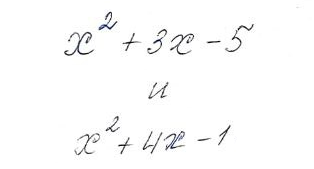 x² + 3x - 5
и
x² + 4x - 1